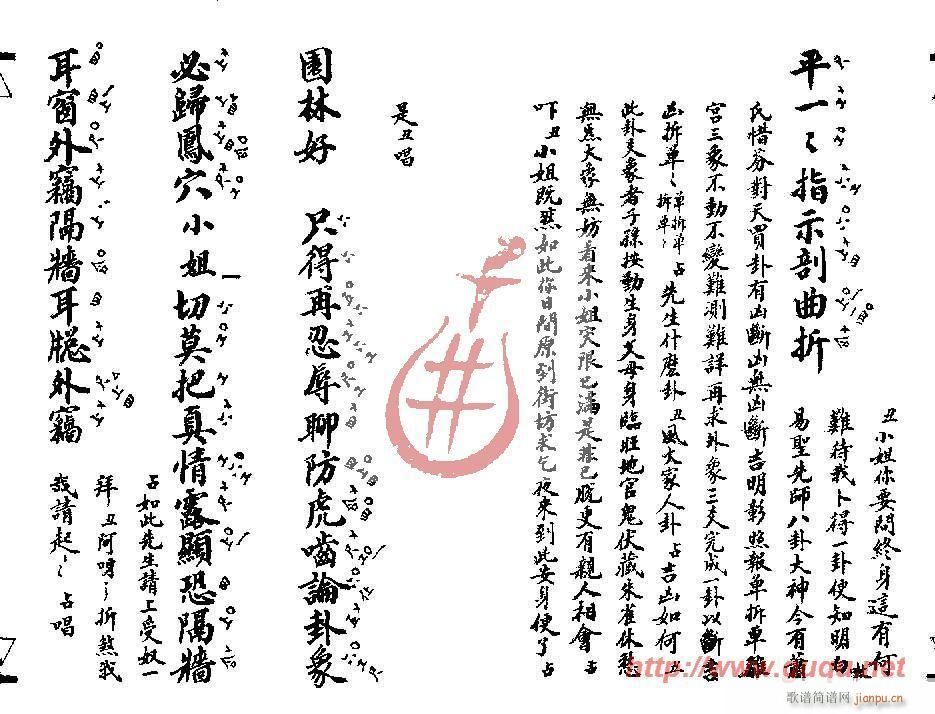 平一〻指示剖曲折
丑小姐你要問終身這有何
難待我卜得一卦使知明白
易聖先師八卦大神今有蕭
氏惜芬對天買卦有凶斷凶無凶斷吉明彰照報單拆單
宮三象不動不變難測難詳再求外象三爻完成一卦以斷吉
凶拆單〻單拆單拆單〻占先生什麼卦丑風火家人卦占吉凶如何丑
此卦爻象者子孫按動生身父母身臨旺地官鬼伏藏朱雀休愁
無炁大象無妨看來小姐灾限已滿是非已脫更有親人相會占
吓丑小姐既然如此你日間原到街坊求乞夜來到此安身便了占
是丑唱
園林好 只得再忍辱聊防虎嚙論卦象
必歸鳳穴小姐切莫把真情露顯恐隔牆
占如此先生請上受奴一
拜丑阿呀〻折煞我
耳窗外竊隔牆耳聽外竊
哉請起〻占唱
http://www.guqu.net
歌谱简谱网
jianpu.cn